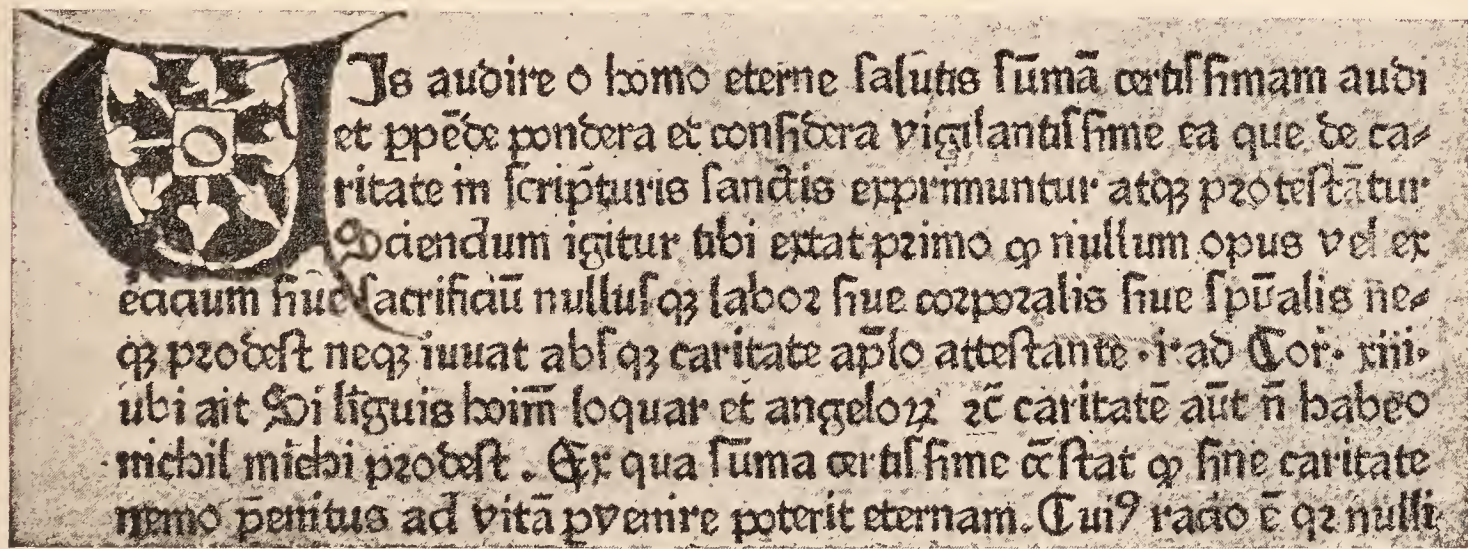 VIs audire o homo eterne ſalutis ſūmā certiſſimam audi
et ꝑpēde pondera et conſidera vigilantiſſime ea que de ca⸗
ritate in ſcripturis ſanctis exprimuntur atqꝫ pꝛoteſtātur
Sciendum igitur tibi extat pꝛimo ꝙ nullum opus vel ex
ercicium ſiue ſacrificiū nulluſqꝫ laboꝛ ſiue coꝛpoꝛalis ſiue ſpūalis ne⸗
qꝫ pꝛodeſt neqꝫ iuuat abſqꝫ caritate apl̄o atteſtante · i · ad Cor · xiii ·
ubi ait Si līguis hoim̄ loquar et angeloꝝ ꝛc̄ caritatē aūt n̄ habeo
nichil michi pꝛodeſt . Ex qua ſūma certiſſime cōſtat ꝙ ſine caritate
nemo p̄enitus ad vitā ꝑuenire poterit eternam. Cuiꝰ racio ē qꝛ nulli